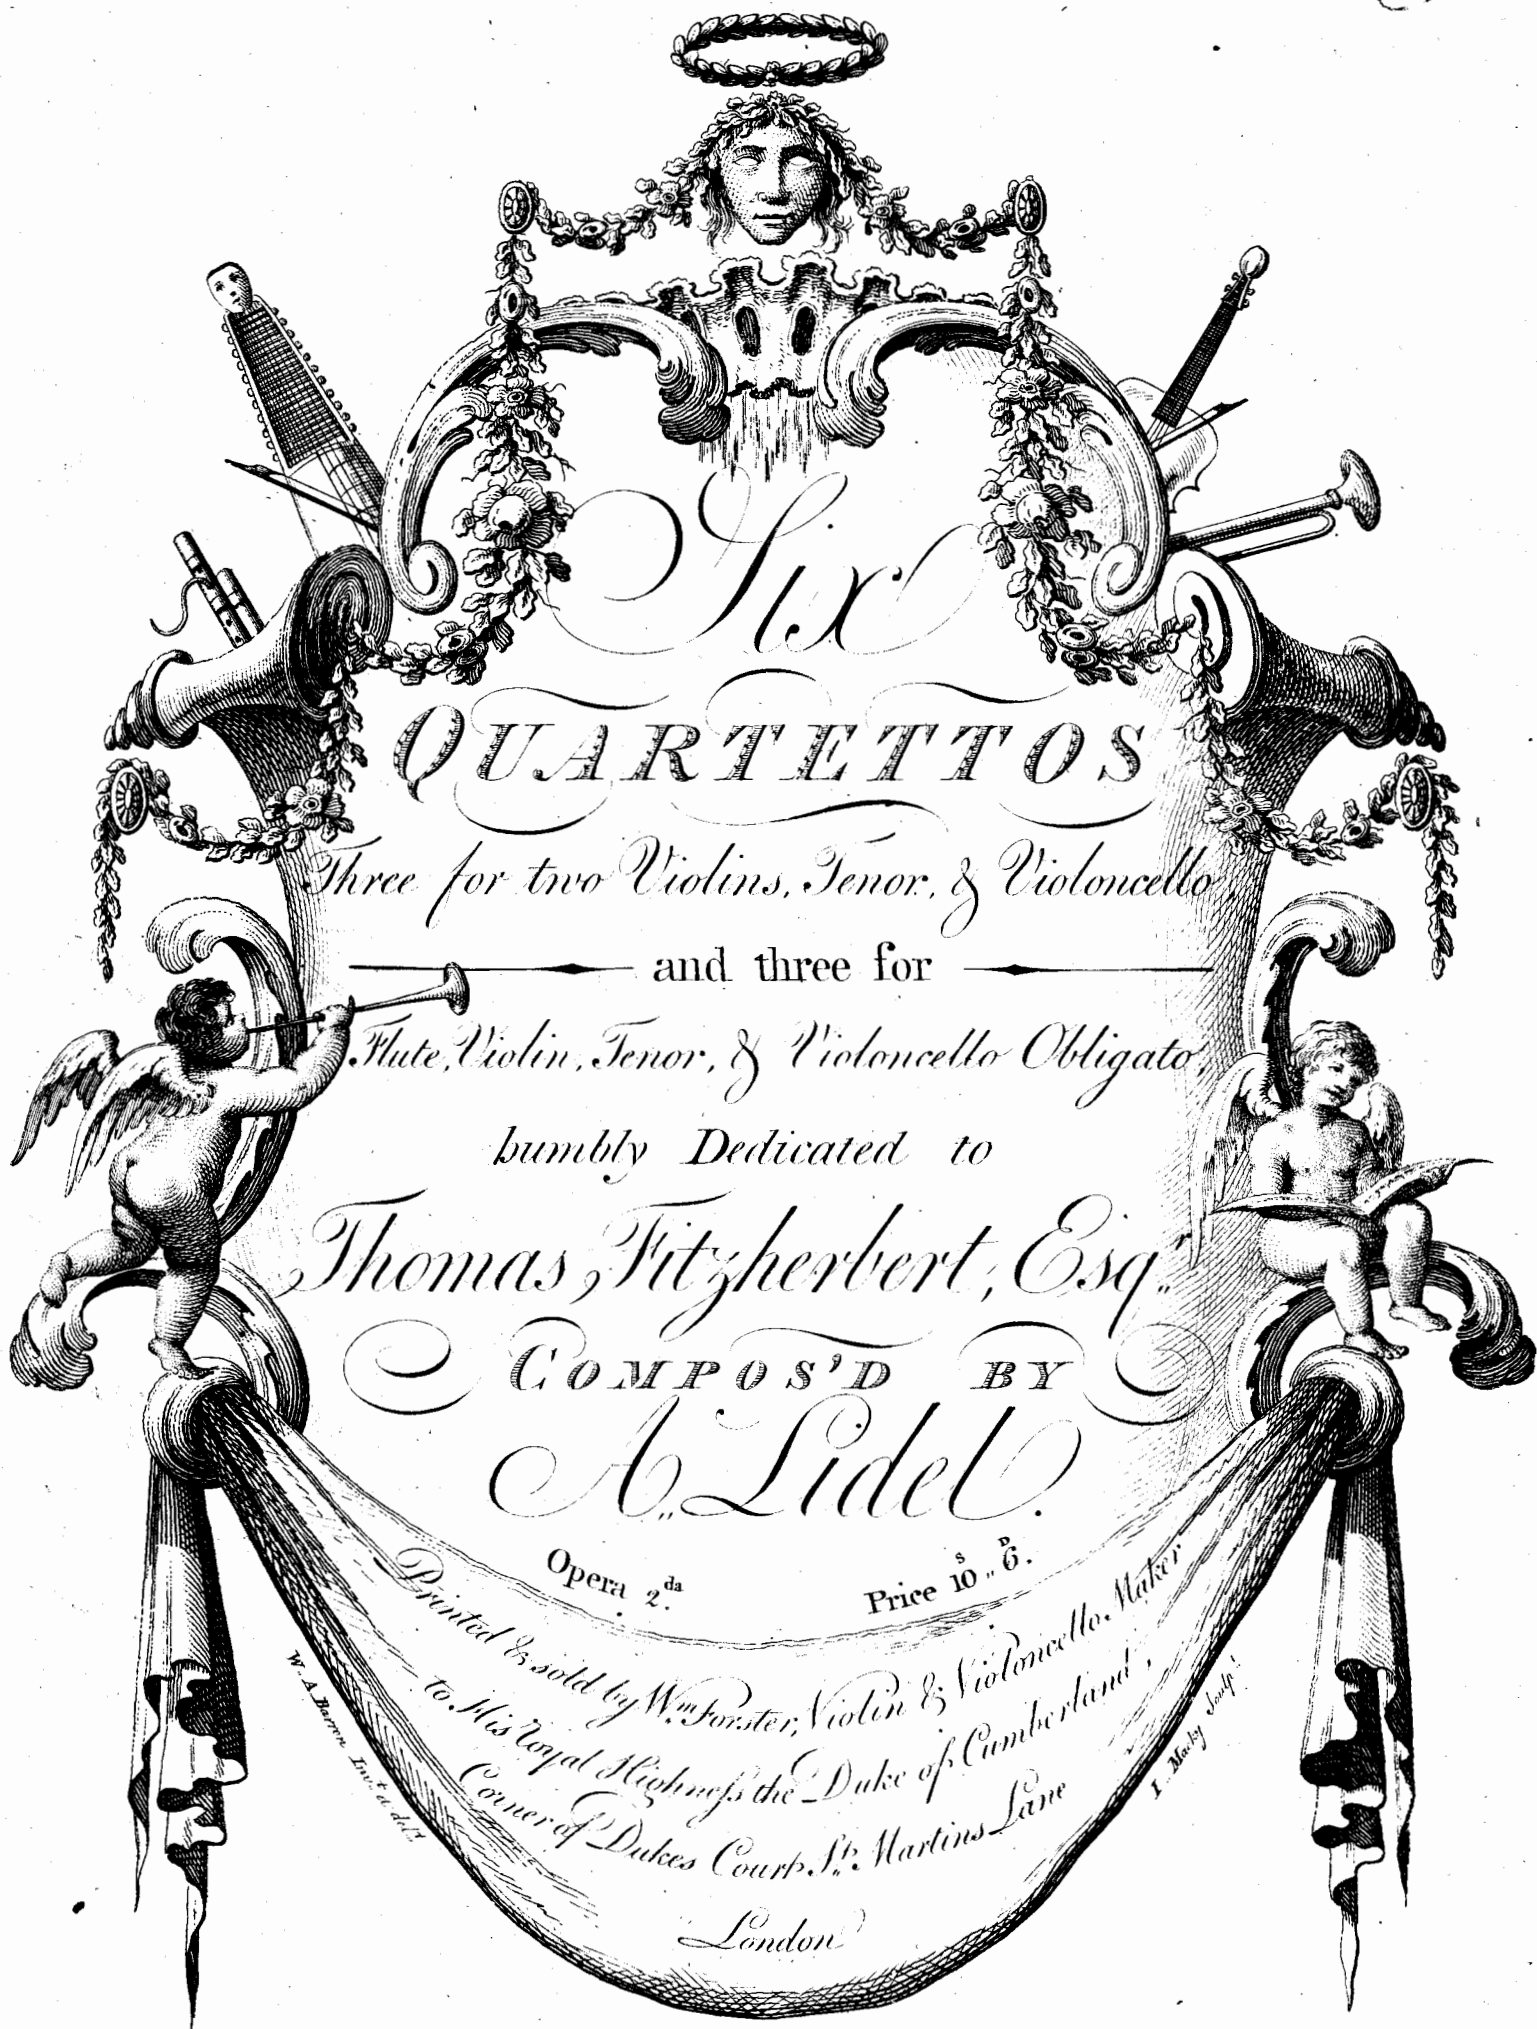 Six
QUARTETTOS
Three for two Violins, Tenor, & Violoncello,
and three for
Flute, Violin, Tenor, & Violoncello Obligato,
humbly Dedicated to
Thomas Fitzherbert, Esqr.
COMPOS'D BY
A. Lidel.
Opera 2.da
Price 10s,, 6.D
Printed & sold by Wm. Forster, Violin & Violoncello Maker
to His Royal Highneſs the Duke of Cumberland,
Corner of Dukes Court St. Martins Lane
London
W. A. Barron Invt. & delt.
I. Macky Sculpt.